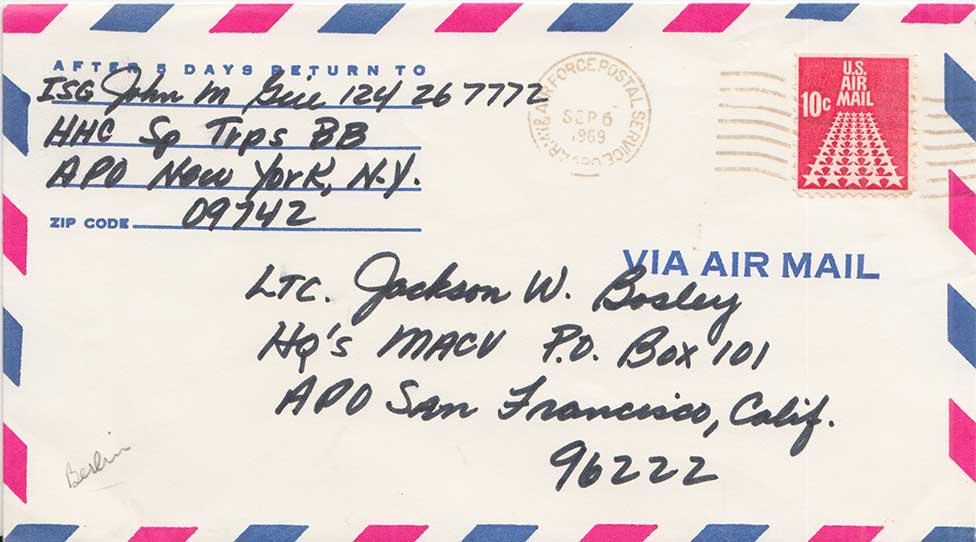 AFTER 5 DAYS RETURN TO
ISG John M Geie 124 26 7772
HHC Sp Trps BB
APO New York, N.Y.
ZIP CODE 09742
ARMY & AIR FORCE POSTAL SERVICE
SEP 6
1969
U.S.
AIR
MAIL
10c
VIA AIR MAIL
LTC. Jackson W. Bosley
HQ's MACV P.O. Box 101
APO San Francisco, Calif.
96222
Berlin